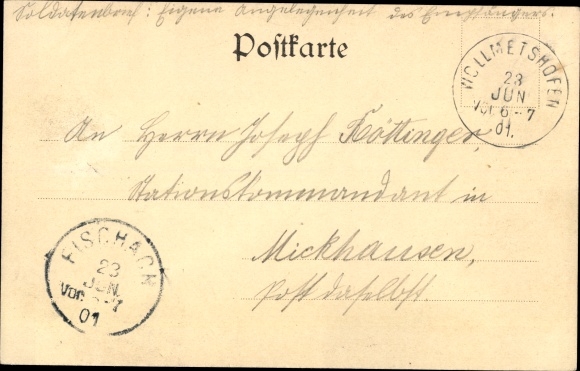 Soldatenbrief: Eigene Angelegenheit des Empfängers.
Postkarte
WOLLMETSHOFEN
23
JUN
VOR 6-7
01.
An Herrn Joseph Köttinger,
Stationskommandant in
Mickhausen,
Post daselbst.
FISCHACH
23
JUN.
VOR 6-7
01